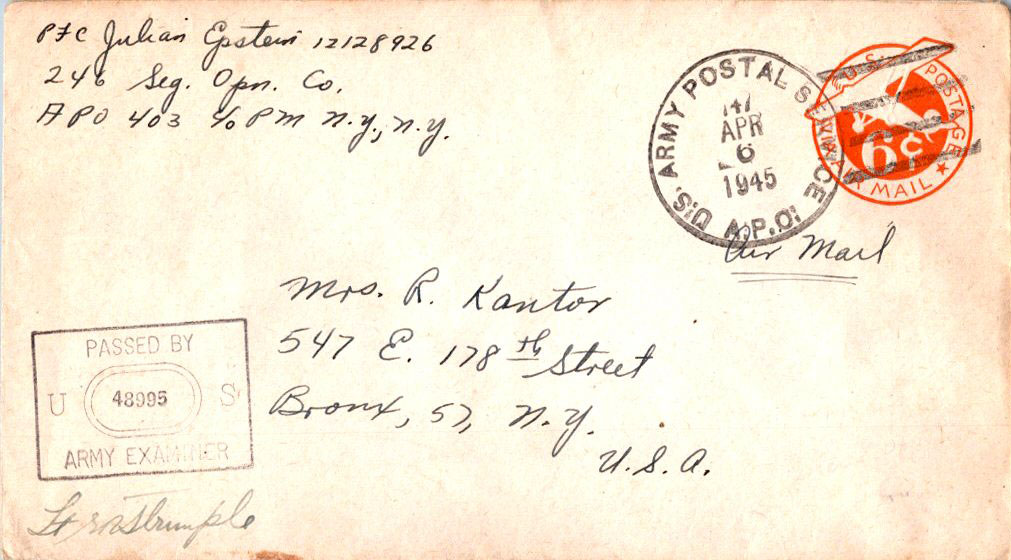 PFC Julian Epstein 12128926
246 Sig. Opn. Co.
APO 403 c/o PM N.Y., N.Y.
U.S. ARMY POSTAL SERVICE
APR
6
1945
A.P.O.
U.S. POSTAGE
6¢
AIR MAIL
Air Mail
Mrs. R. Kantor
547 E. 178th Street
Bronx, 57, N.Y.
U.S.A.
PASSED BY
U 48995 S
ARMY EXAMINER
Lt Strumple